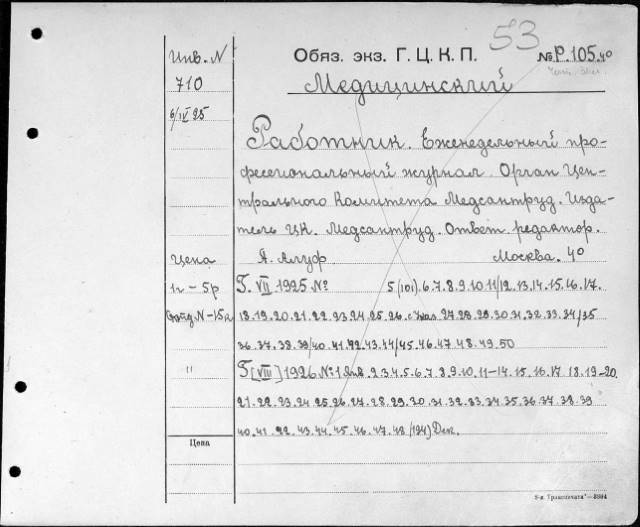 Инв. N
710
6/IV 25
Цена
1г – 5р
Отд. N – 15к
"
Цена
53
Обяз. экз. Г. Ц. К. П. № Р. 105.4°
Медицинский
Работник. Еженедельный про-
фессиональный журнал. Орган Цен-
трального Комитета Медсантруд. Изда-
тель ЦК. Медсантруд. Ответ. редактор.
А. Алуф Москва. 4°
Г. VII 1925 № 5(101).6.7.8.9.10.11/12.13.14.15.16.17.
18.19.20.21.22.23.24.25.26. с 27.28.29.30.31.32.33.34/35
36.37.38.39/40.41.42.43.44/45.46.47.48.49.50
Г [VIII] 1926 №: 1 Янв 2.3.4.5.6.7.8.9.10.11–14.15.16.17.18.19–20.
21.22.23.24.25.26.27.28.29.30.31.32.33.34.35.36.37.38.39
40.41.42.43.44.45.46.47.48 (194) Дек.
8-я „Транспечати"—3984